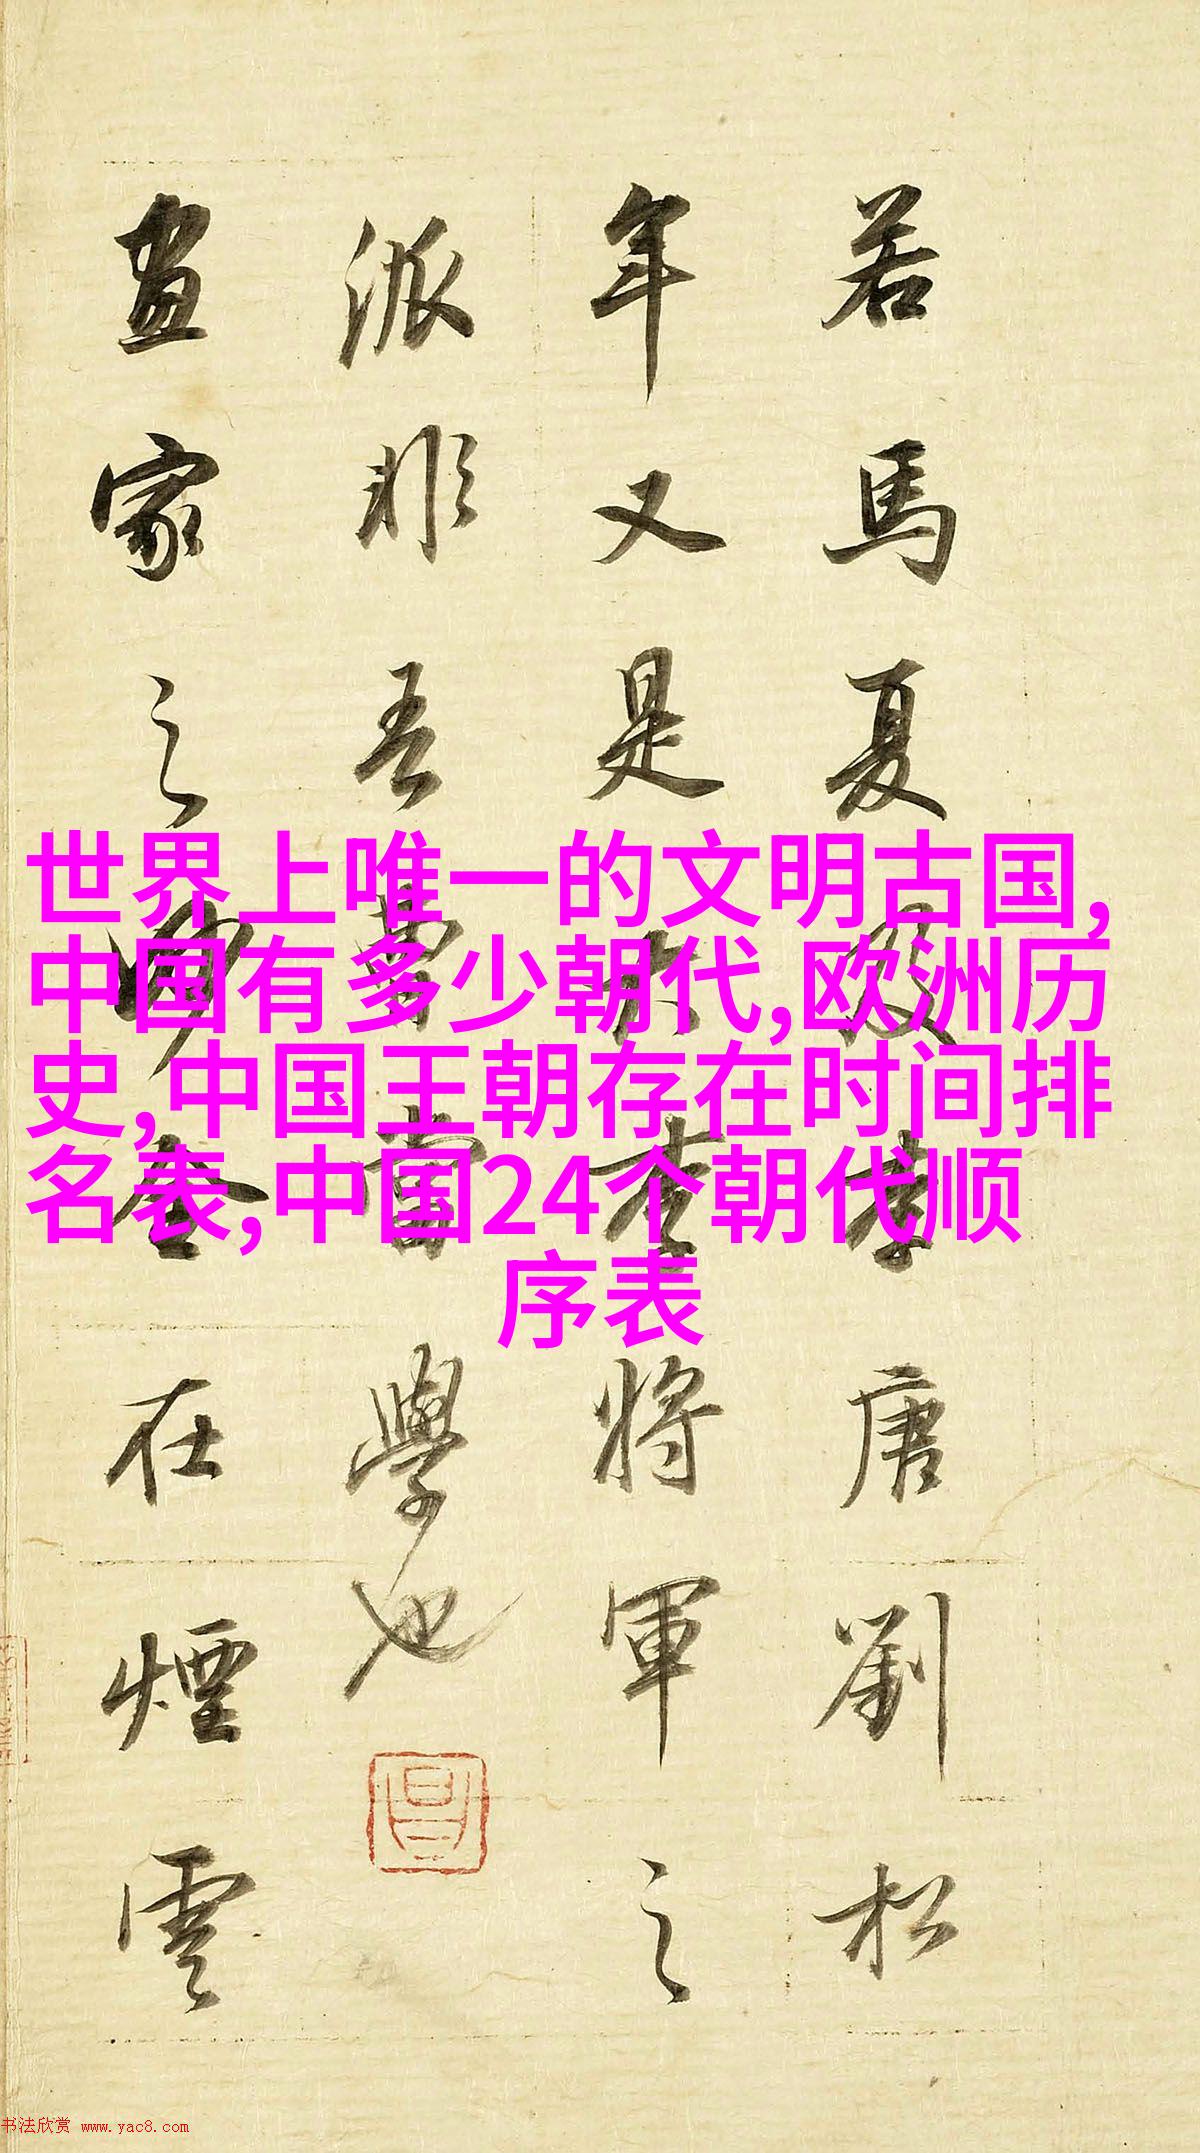 世界上唯一的文明古国,
中国有多少朝代,欧洲历
史,中国王朝存在时间排
名表,中国24个朝代顺
序表
若馬夏及李唐劉松
年又是大李將軍之
派非吾曹當學也
畫家之妙全在煙雲
书法欣赏 www.yac8.com